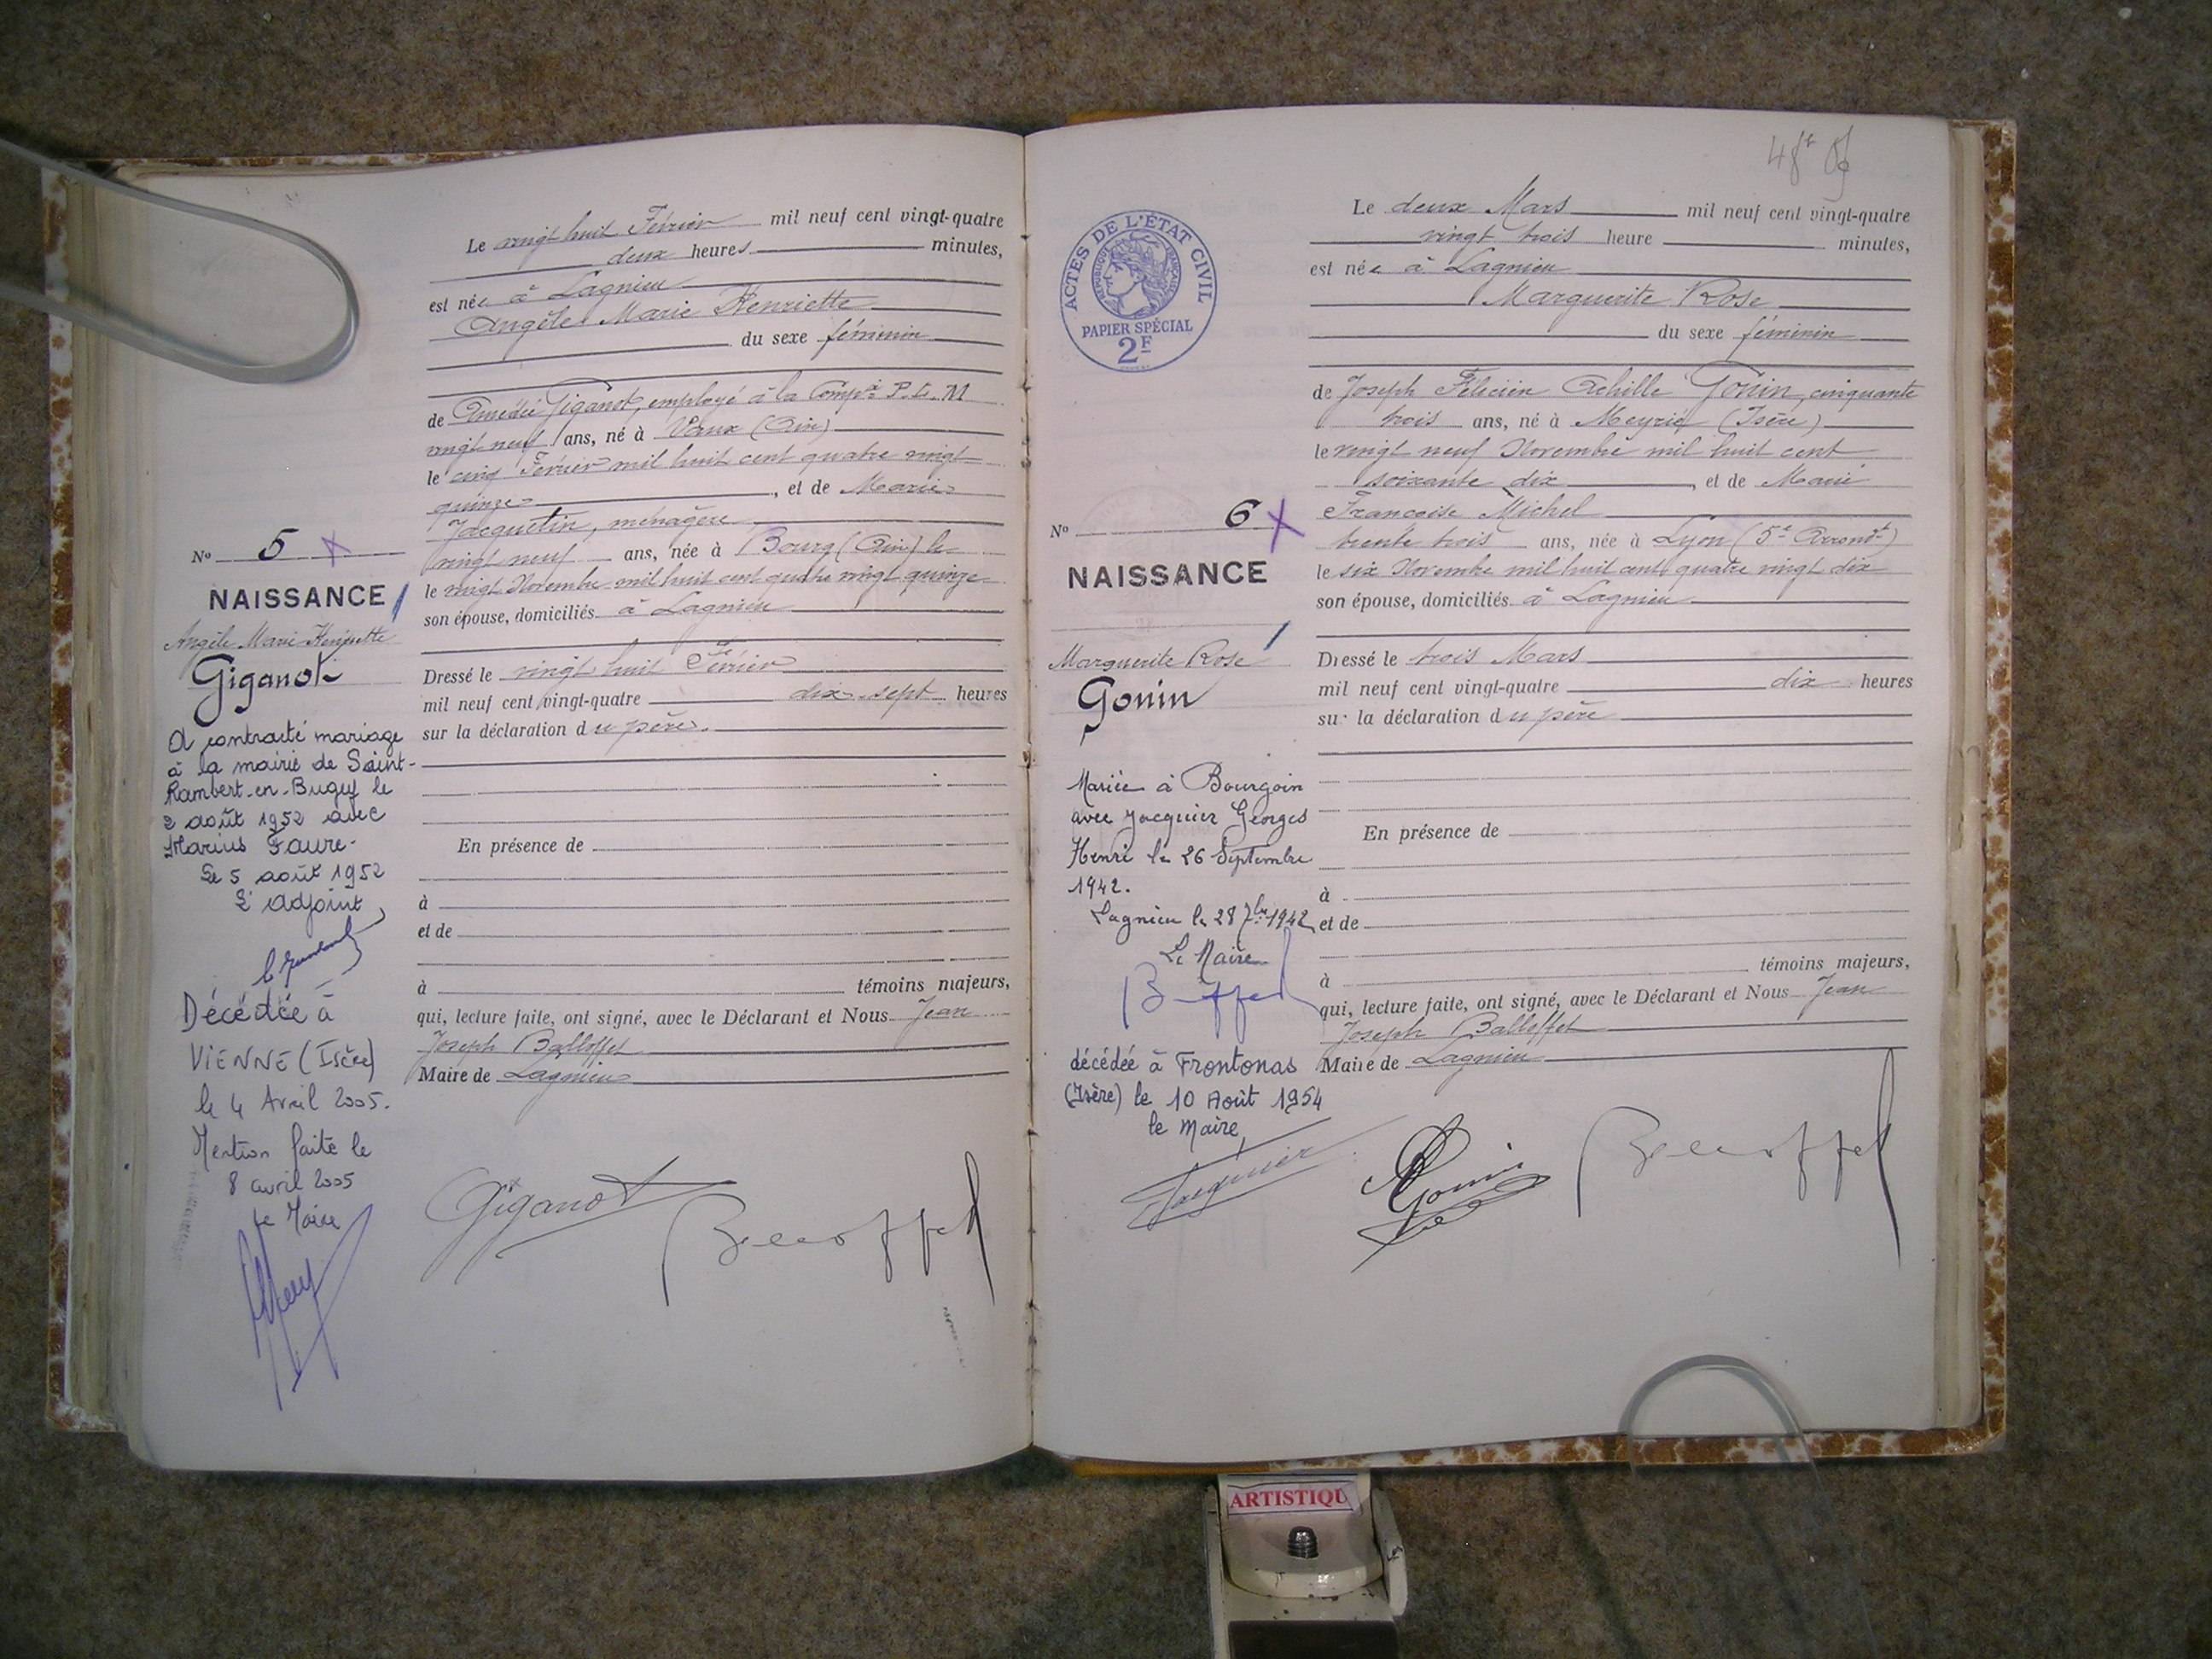 Le vingt huit Février mil neuf cent vingt-quatre
deux heures minutes,
est née à Lagnieu
Angèle Marie Henriette
du sexe féminin
de Amédée Giganot, employé à la Compie P.L.M
vingt neuf ans, né à Vaux (Ain)
le cinq Février mil huit cent quatre vingt
quinze, et de Marie
Jacquetin, ménagère
vingt neuf ans, née à Bourg (Ain) le
le vingt Novembre mil huit cent quatre vingt quinze
son épouse, domiciliés à Lagnieu
Dressé le vingt huit Février
mil neuf cent vingt-quatre dix-sept heures
sur la déclaration du père.
En présence de
à
et de
à témoins majeurs,
qui, lecture faite, ont signé, avec le Déclarant et Nous Jean
Joseph Balloffet
Maire de Lagnieu
Giganot Balloffet
No 5
NAISSANCE
Angèle Marie Henriette
Giganot
A contracté mariage
à la mairie de Saint-
Rambert-en-Bugey le
2 août 1952 avec
Marius Faure.
Le 5 août 1952
L'adjoint,
Décédée à
VIENNE (Isère)
le 4 Avril 2005.
Mention faite le
8 avril 2005
le Maire
48
Le deux Mars mil neuf cent vingt-quatre
vingt trois heure minutes,
est née à Lagnieu
Marguerite Rose
du sexe féminin
de Joseph Félicien Achille Gonin, cinquante
trois ans, né à Meyrié (Isère)
le vingt neuf Novembre mil huit cent
soixante dix, et de Marie
Françoise Michel
trente trois ans, née à Lyon (5e Arrondt)
le six Novembre mil huit cent quatre vingt dix
son épouse, domiciliés à Lagnieu
Dressé le trois Mars
mil neuf cent vingt-quatre dix heures
sur la déclaration du père
En présence de
à
et de
à témoins majeurs,
qui, lecture faite, ont signé, avec le Déclarant et Nous Jean
Joseph Balloffet
Maire de Lagnieu
Gonin Balloffet
ACTES DE L'ÉTAT CIVIL
RÉPUBLIQUE FRANÇAISE
PAPIER SPÉCIAL
2F
No 6
NAISSANCE
Marguerite Rose
Gonin
Mariée à Bourgoin
avec Jacquier Georges
Henri le 26 Septembre
1942.
Lagnieu le 28 7bre 1942
Le Maire
Balloffet
décédée à Frontonas
(Isère) le 10 Août 1954
le Maire,
ARTISTIQU